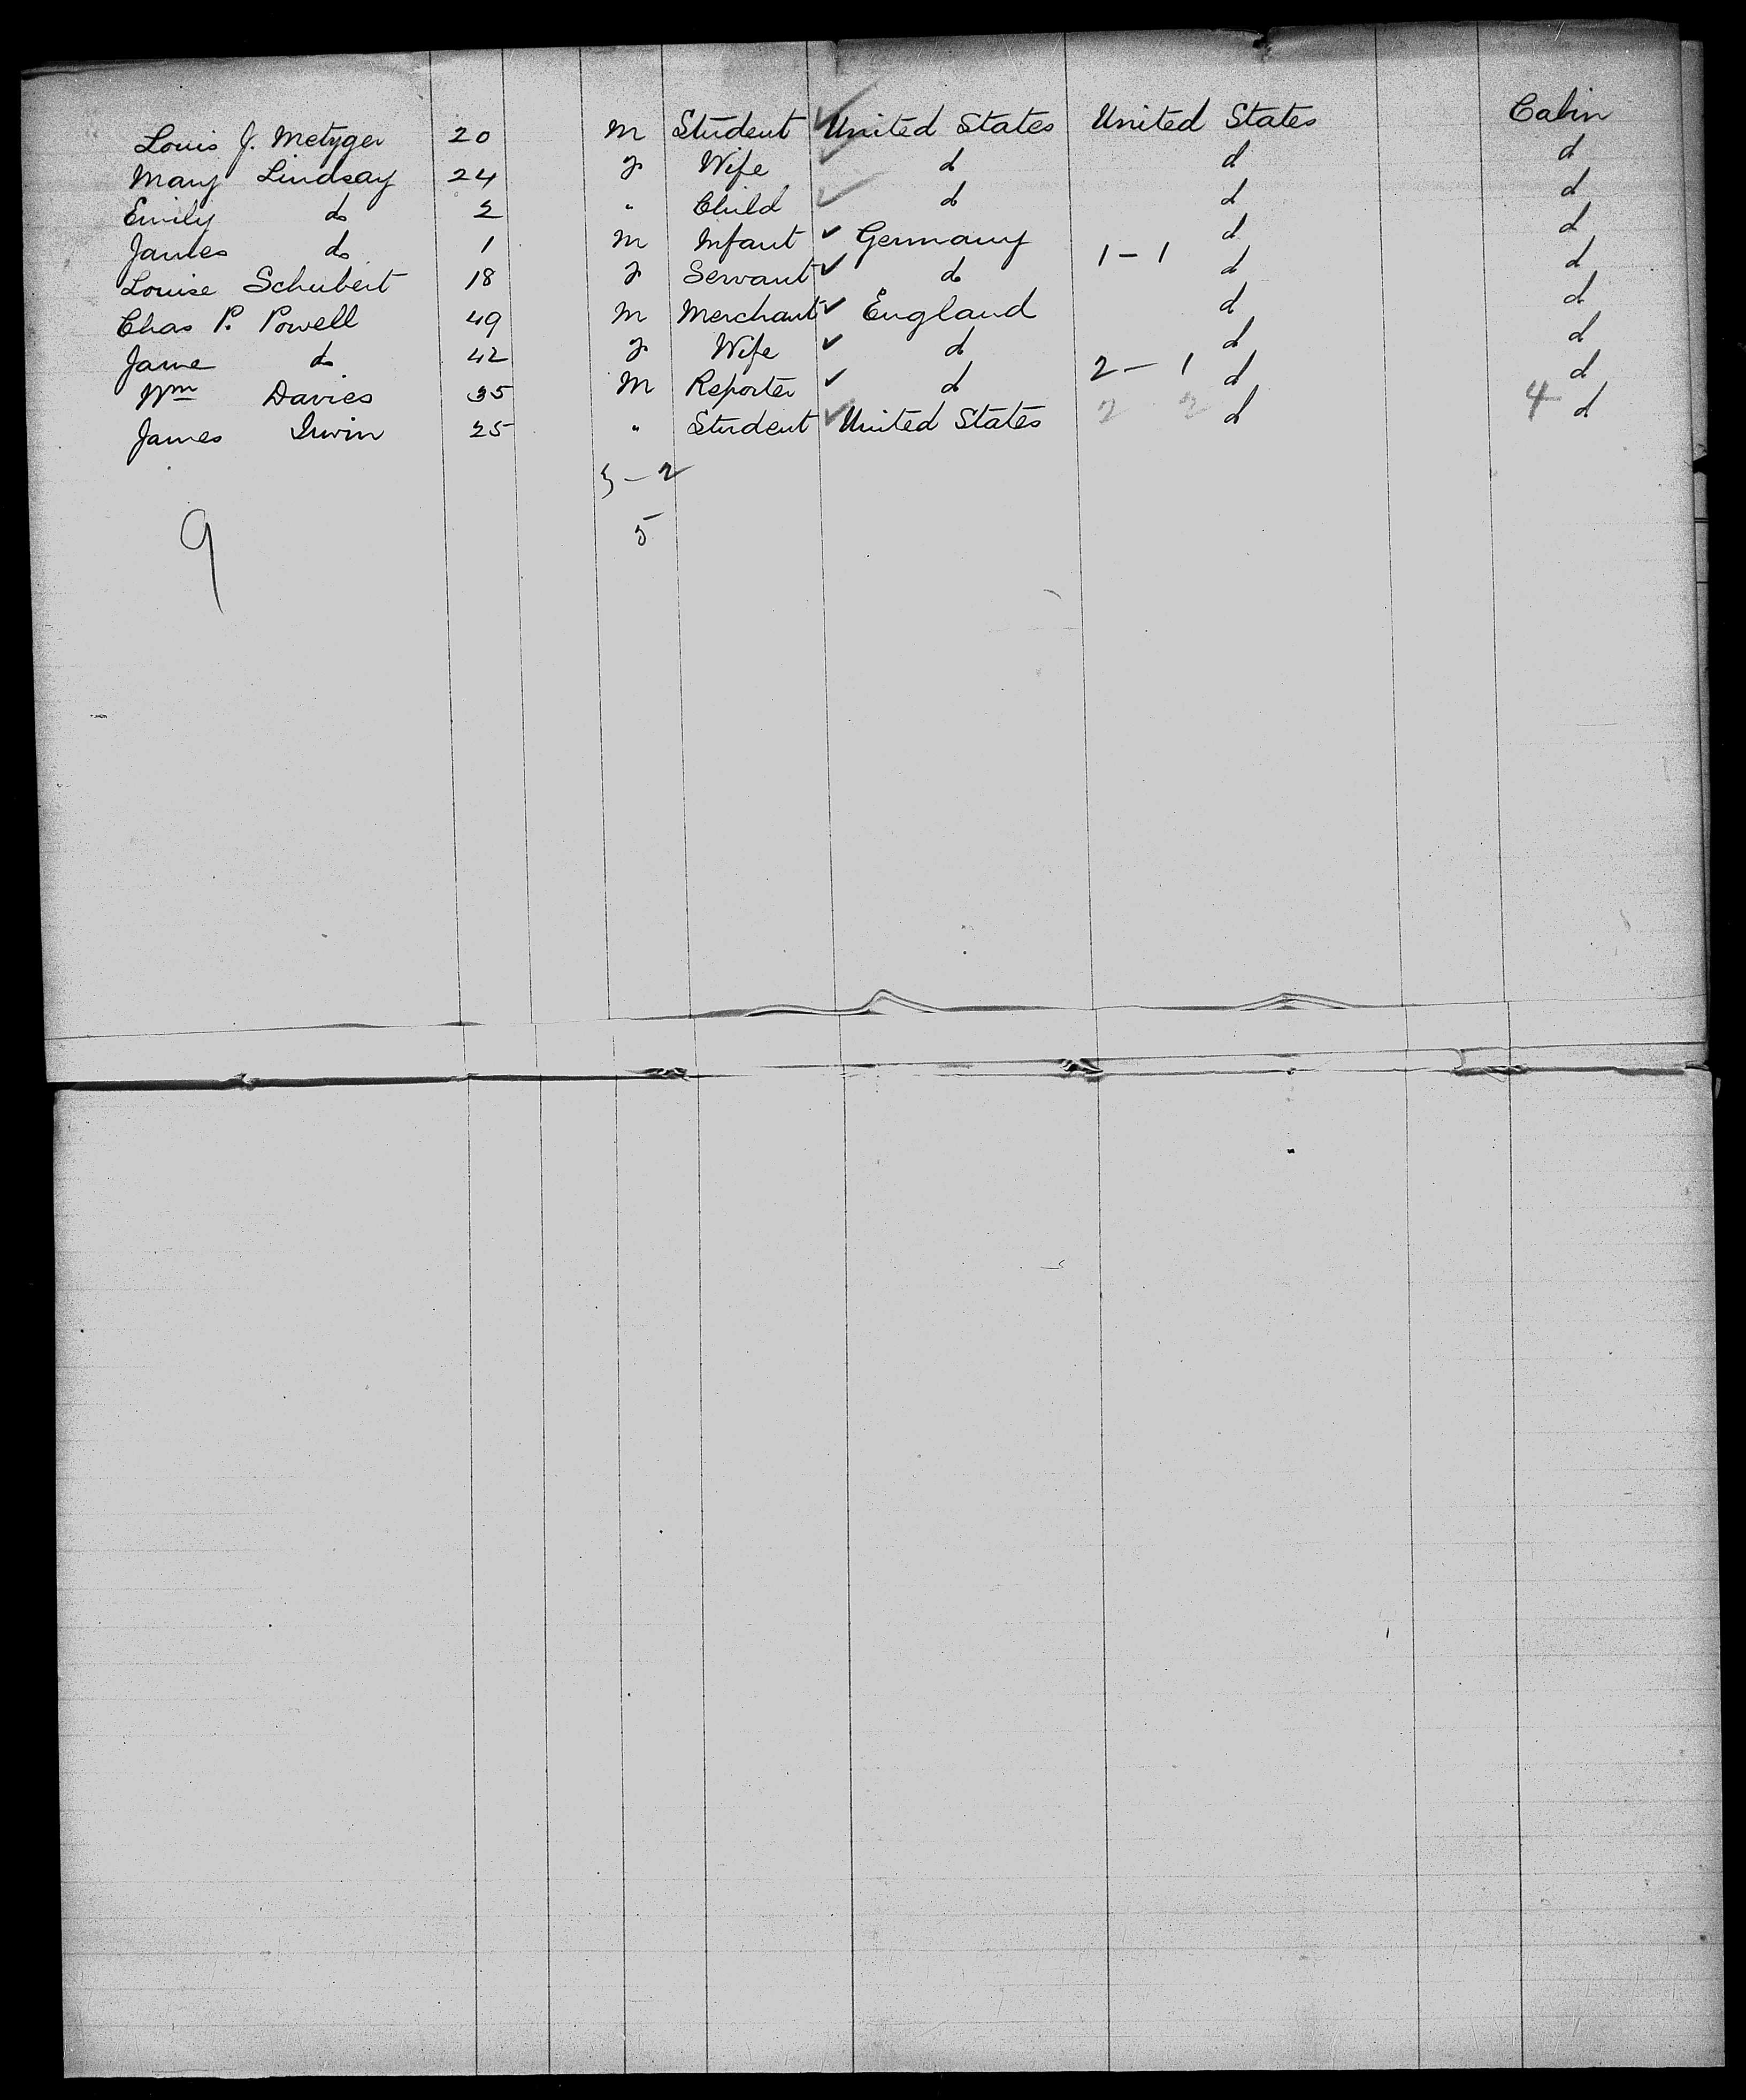 Louis J. Metzger 20 M Student United States United States Cabin
Mary Lindsay 24 F Wife d d d
Emily do 2 " Child d d d
James do 1 M Infant Germany d d
Louise Schubert 18 F Servant d 1-1 d d
Chas P. Powell 49 M Merchant England d d
Jane do 42 F Wife d d d
Wm Davies 35 M Reporter d 2-1 d d
James Irwin 25 " Student United States 2 2 d 4 d
3-2
9 5